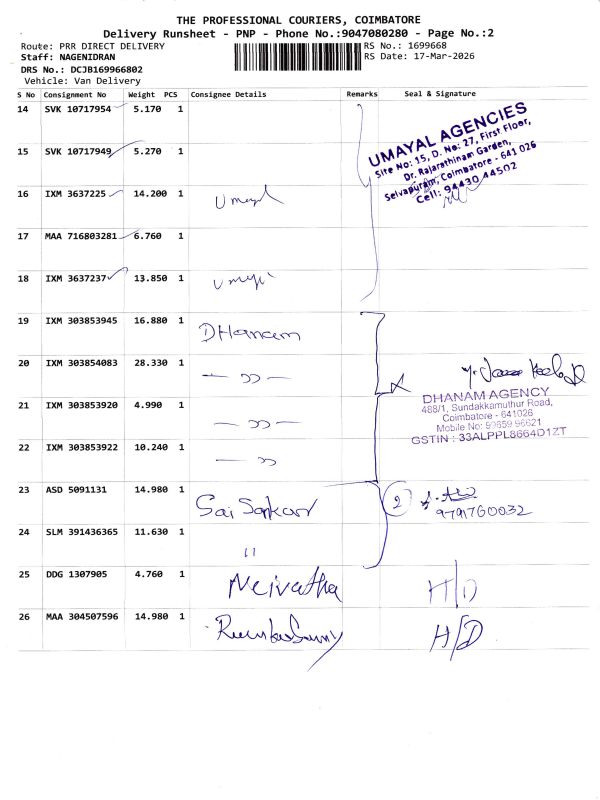 THE PROFESSIONAL COURIERS, COIMBATORE
Delivery Runsheet - PNP - Phone No.:9047080280 - Page No.:2
Route: PRR DIRECT DELIVERY
RS No.: 1699668
Staff: NAGENIDRAN
RS Date: 17-Mar-2026
DRS No.: DCJB169966802
Vehicle: Van Delivery
S No Consignment No Weight PCS Consignee Details Remarks Seal & Signature
14 SVK 10717954 5.170 1
UMAYAL AGENCIES
Site No: 15, D. No: 27, First Floor,
Dr. Rajarathinam Garden,
Selvapuram, Coimbatore - 641 026
Cell: 94430 44502
15 SVK 10717949 5.270 1
16 IXM 3637225 14.200 1 Umayal
17 MAA 716803281 6.760 1
18 IXM 3637237 13.850 1
19 IXM 303853945 16.880 1 DHanam
20 IXM 303854083 28.330 1 — ״ —
DHANAM AGENCY
488/1, Sundakkamuthur Road,
Coimbatore - 641026
Mobile No: 99659 96621
GSTIN : 33ALPPL8664D1ZT
21 IXM 303853920 4.990 1 — ״ —
22 IXM 303853922 10.240 1 — ״
23 ASD 5091131 14.980 1 Sai Sankar 2
9791760032
24 SLM 391436365 11.630 1 11
25 DDG 1307905 4.760 1 Neivatha H/D
26 MAA 304507596 14.980 1 H/D